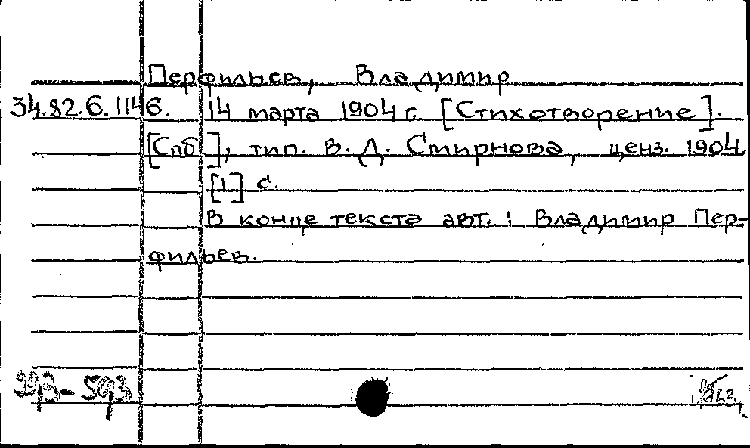 Перфильев, Владимир
34.82.6.1146. 14 марта 1904 г. [Стихотворение].
[Спб], тип. В. Д. Смирнова, ценз. 1904
[1] с.
В конце текста авт.: Владимир Пер-
фильев.